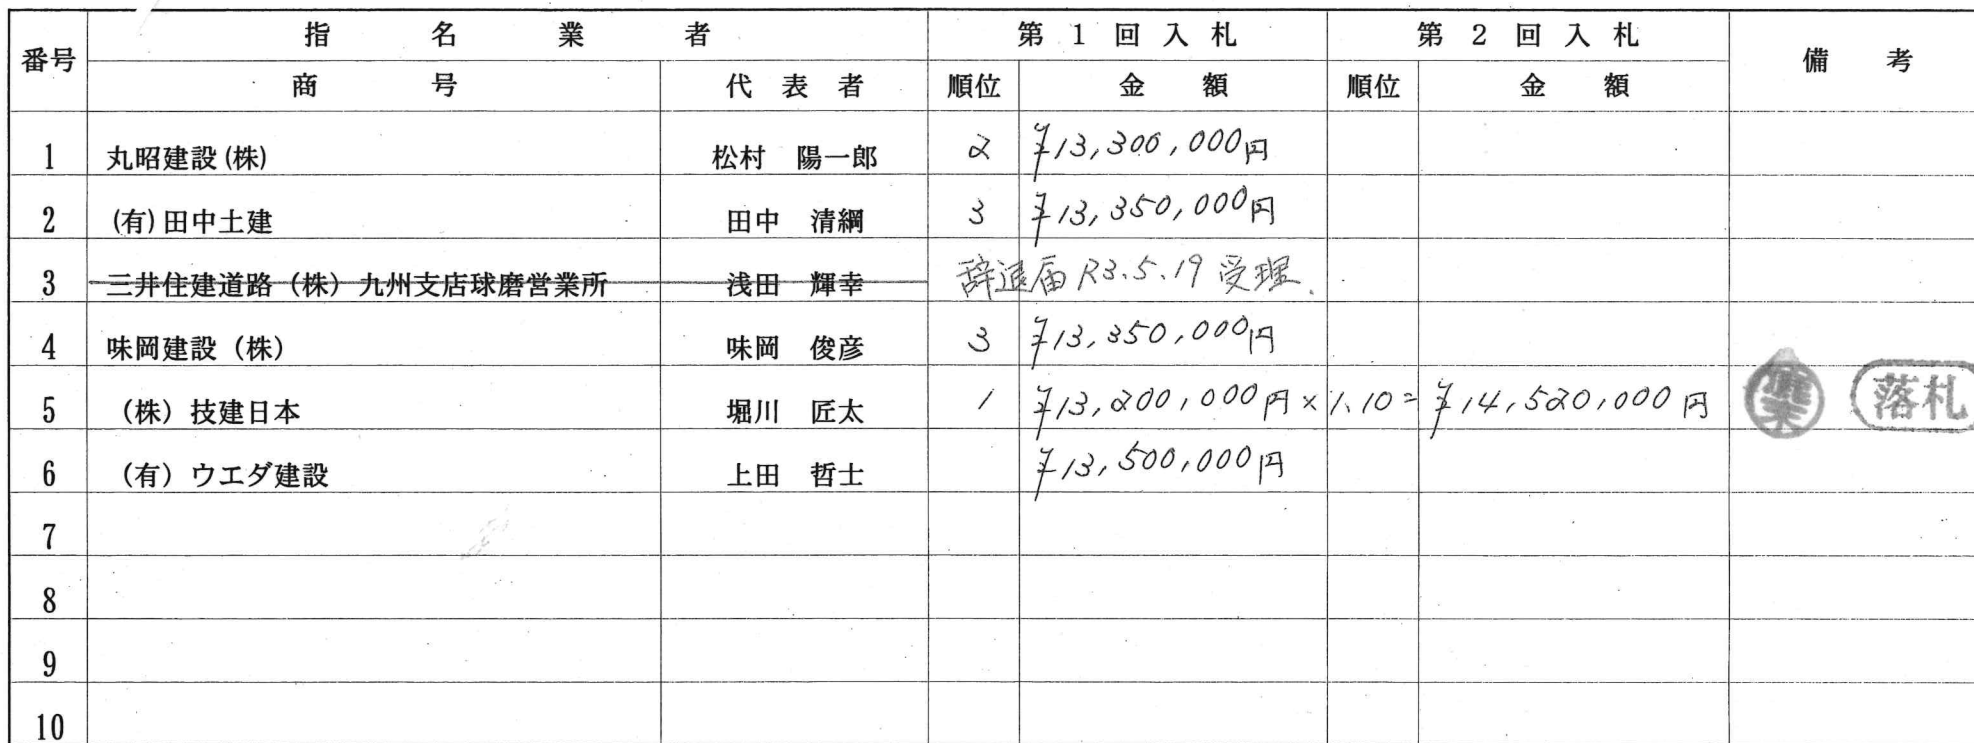 番号 指名業者 第1回入札 第2回入札 備考
商号 代表者 順位 金額 順位 金額
1 丸昭建設(株) 松村 陽一郎 2 ¥13,300,000円
2 (有)田中土建 田中 清綱 3 ¥13,350,000円
3 三井住建道路(株)九州支店球磨営業所 浅田 輝幸 辞退届R3.5.19受理.
4 味岡建設(株) 味岡 俊彦 3 ¥13,350,000円
5 (株)技建日本 堀川 匠太 1 ¥13,200,000円×1.10=¥14,520,000円 落札
6 (有)ウエダ建設 上田 哲士 ¥13,500,000円
7
8
9
10